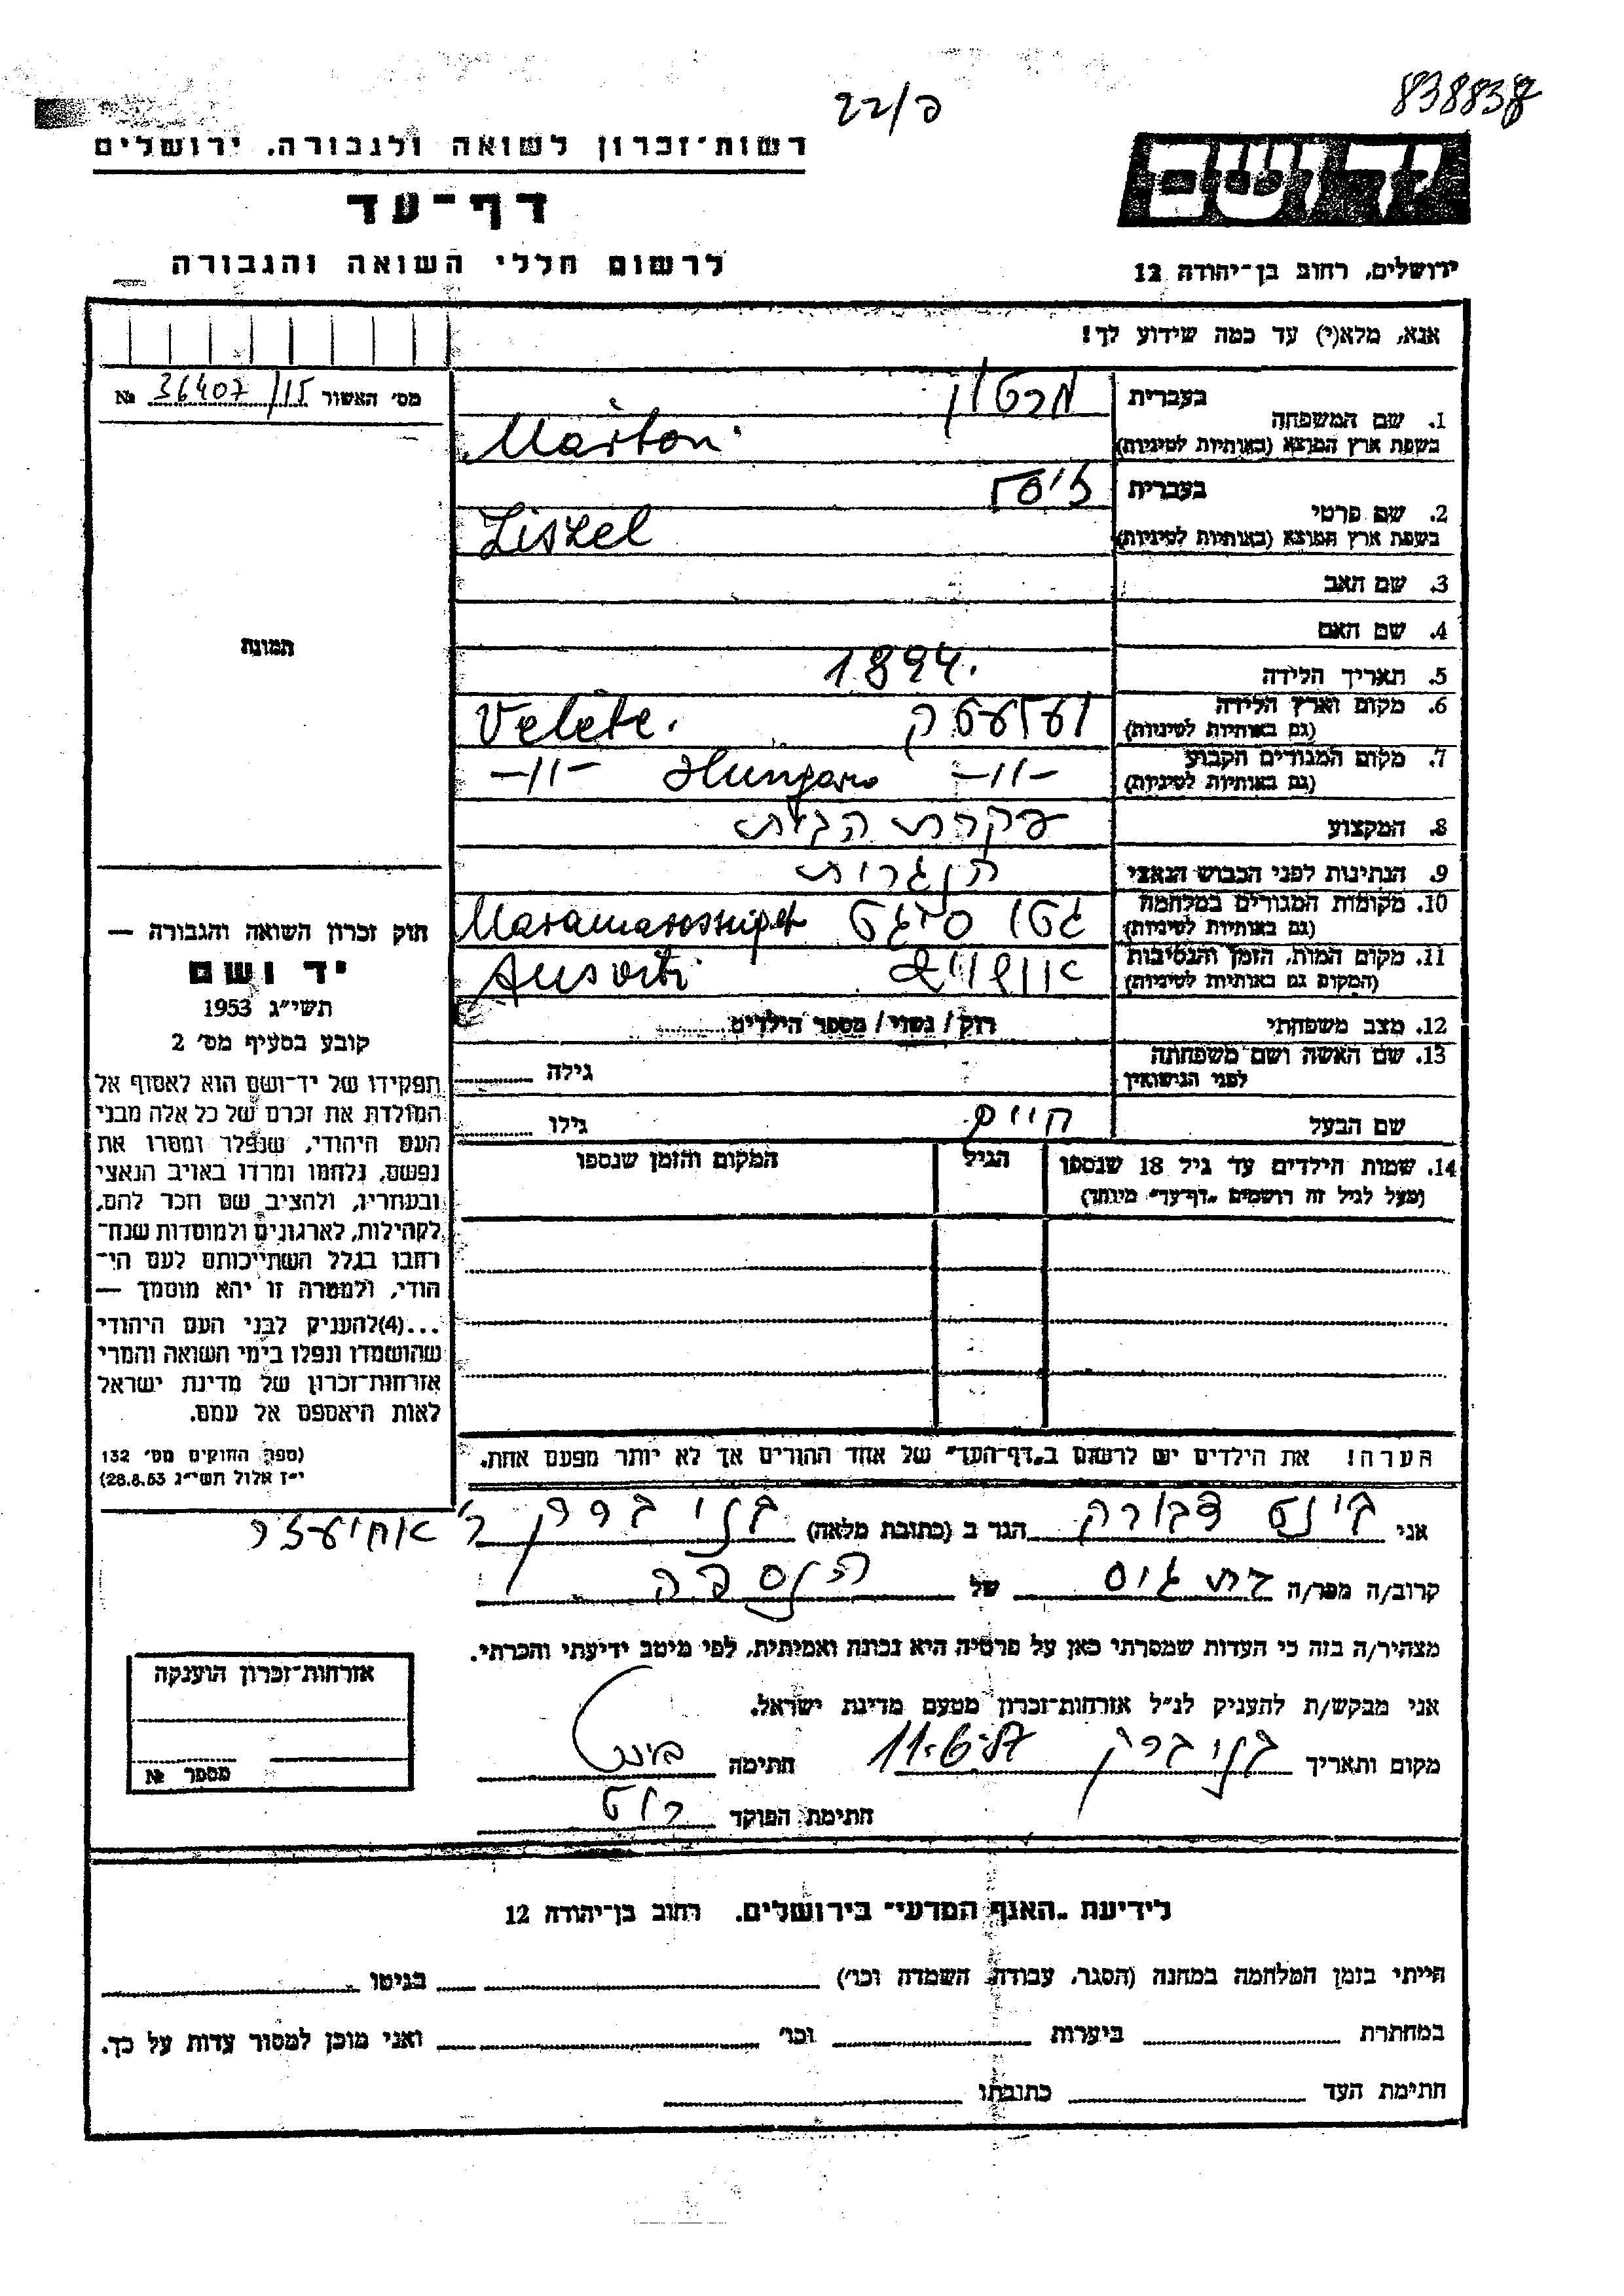 838838
22/פ
רשות-זכרון לשואה ולגבורה, ירושלים
יד ושם
דף-עד
לרשום חללי השואה והגבורה
ירושלים, רחוב בן-יהודה 12
אנא, מלא(י) עד כמה שידוע לך!
מס׳ האשור 36407/15 №
בעברית מרטון
1. שם המשפחה
בשפת ארץ המוצא (באותיות לטיניות) Márton
בעברית
2. שם פרטי
בשפת ארץ המוצא (באותיות לטיניות)
3. שם האב
4. שם האם
5. תאריך הלידה 1894.
6. מקום וארץ הלידה
(גם באותיות לטיניות) Veléte.
7. מקום המגורים הקבוע
(גם באותיות לטיניות) -11- Hungaro -11-
8. המקצוע עקרת הבית
9. הנתינות לפני הכבוש הנאצי הונגרית
10. מקומות המגורים במלחמה
(גם באותיות לטיניות) גטו סיגט Maramarossziget
11. מקום המות, הזמן והנסיבות
(המקום גם באותיות לטיניות) אושויץ Ausvitz
12. מצב משפחתי רוק/נשוי/מספר הילדים
13. שם האשה ושם משפחתה
לפני הנישואין גילה
שם הבעל חיים גילו
14. שמות הילדים עד גיל 18 שנספו הגיל המקום והזמן שנספו
(מעל לגיל זה רושמים „דף-עד" מיוחד)
הערה! את הילדים יש לרשום ב„דף-העד" של אחד ההורים אך לא יותר מפעם אחת.
תמונת
חוק זכרון השואה והגבורה —
יד ושם
תשי״ג 1953
קובע בסעיף מס׳ 2
תפקידו של יד-ושם הוא לאסוף אל
המולדת את זכרם של כל אלה מבני
העם היהודי, שנפלו ומסרו את
נפשם, נלחמו ומרדו באויב הנאצי
ובעוזריו, ולהציב שם וזכר להם,
לקהילות, לארגונים ולמוסדות שנח-
רבו בגלל השתייכותם לעם הי-
הודי, ולמטרה זו יהא מוסמך —
...(4)להעניק לבני העם היהודי
שהושמדו ונפלו בימי השואה והמרי
אזרחות-זכרון של מדינת ישראל
לאות היאספם אל עמם.
(ספר החוקים מס׳ 132
י״ז אלול תשי״ג 28.8.53)
אני דבורה הגר ב (כתובת מלאה) בני ברק ר׳ אחיעזר
קרוב/ה מכר/ה בת גיס של הנספה
מצהיר/ה בזה כי העדות שמסרתי כאן על פרטיה היא נכונה ואמיתית, לפי מיטב ידיעתי והכרתי.
אני מבקש/ת להעניק לנ״ל אזרחות-זכרון מטעם מדינת ישראל.
מקום ותאריך בני ברק חתימה
חתימת הפוקד
אזרחות-זכרון הוענקה
מספר №
לידיעת „האגף המדעי" בירושלים, רחוב בן-יהודה 12
הייתי בזמן המלחמה במחנה (הסגר, עבודה, השמדה וכו׳) בגיטו
במחתרת ביערות וכו׳ ואני מוכן למסור עדות על כך.
חתימת העד כתובתו